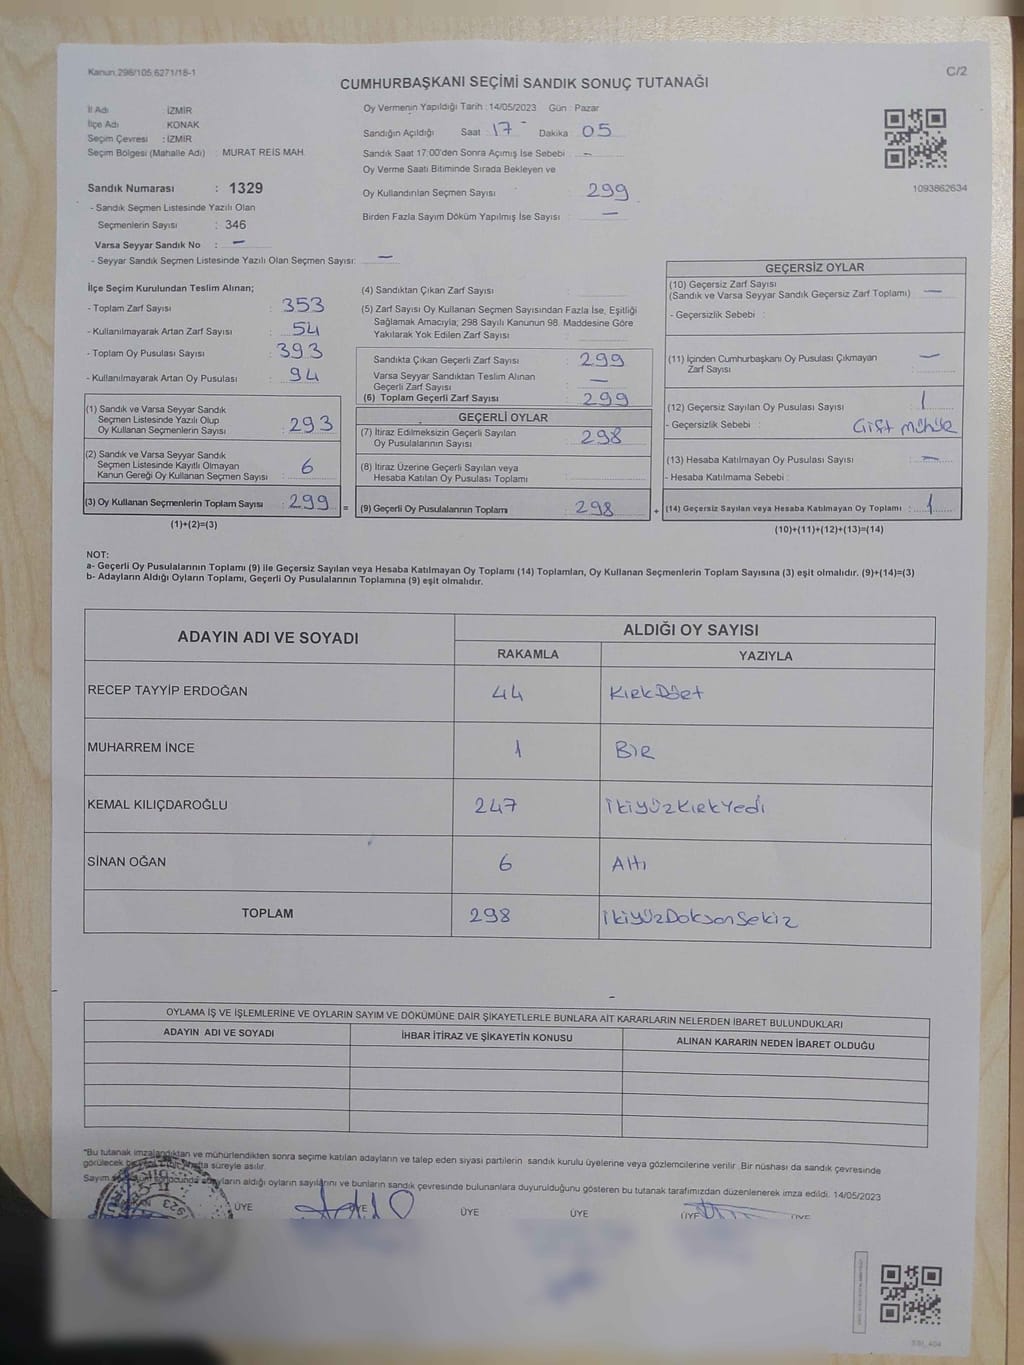 Kanun.298/105,6271/18-1
C/2
CUMHURBAŞKANI SEÇİMİ SANDIK SONUÇ TUTANAĞI
İl Adı : İZMİR
İlçe Adı : KONAK
Seçim Çevresi : İZMİR
Seçim Bölgesi (Mahalle Adı) : MURAT REİS MAH.
Oy Vermenin Yapıldığı Tarih : 14/05/2023 Gün : Pazar
Sandığın Açıldığı Saat 17 Dakika 05
Sandık Saat 17:00'den Sonra Açımış İse Sebebi : –
Oy Verme Saati Bitiminde Sırada Bekleyen ve
Oy Kullandırılan Seçmen Sayısı : 299
Birden Fazla Sayım Döküm Yapılmış İse Sayısı : –
1093862634
Sandık Numarası : 1329
- Sandık Seçmen Listesinde Yazılı Olan
Seçmenlerin Sayısı : 346
Varsa Seyyar Sandık No : –
- Seyyar Sandık Seçmen Listesinde Yazılı Olan Seçmen Sayısı: –
İlçe Seçim Kurulundan Teslim Alınan;
- Toplam Zarf Sayısı : 353
- Kullanılmayarak Artan Zarf Sayısı : 54
- Toplam Oy Pusulası Sayısı : 393
- Kullanılmayarak Artan Oy Pusulası : 94
(1) Sandık ve Varsa Seyyar Sandık
Seçmen Listesinde Yazılı Olup
Oy Kullanan Seçmenlerin Sayısı : 293
(2) Sandık ve Varsa Seyyar Sandık
Seçmen Listesinde Kayıtlı Olmayan
Kanun Gereği Oy Kullanan Seçmen Sayısı : 6
(3) Oy Kullanan Seçmenlerin Toplam Sayısı : 299 =
(1)+(2)=(3)
(4) Sandıktan Çıkan Zarf Sayısı :
(5) Zarf Sayısı Oy Kullanan Seçmen Sayısından Fazla İse, Eşitliği
Sağlamak Amacıyla; 298 Sayılı Kanunun 98. Maddesine Göre
Yakılarak Yok Edilen Zarf Sayısı :
Sandıkta Çıkan Geçerli Zarf Sayısı : 299
Varsa Seyyar Sandıktan Teslim Alınan
Geçerli Zarf Sayısı : –
(6) Toplam Geçerli Zarf Sayısı : 299
GEÇERLİ OYLAR
(7) İtiraz Edilmeksizin Geçerli Sayılan
Oy Pusulalarının Sayısı : 298
(8) İtiraz Üzerine Geçerli Sayılan veya
Hesaba Katılan Oy Pusulası Toplamı :
(9) Geçerli Oy Pusulalarının Toplamı : 298 +
GEÇERSİZ OYLAR
(10) Geçersiz Zarf Sayısı
(Sandık ve Varsa Seyyar Sandık Geçersiz Zarf Toplamı) : –
- Geçersizlik Sebebi :
(11) İçinden Cumhurbaşkanı Oy Pusulası Çıkmayan
Zarf Sayısı : –
(12) Geçersiz Sayılan Oy Pusulası Sayısı : 1
- Geçersizlik Sebebi : Çift mühür
(13) Hesaba Katılmayan Oy Pusulası Sayısı : –
- Hesaba Katılmama Sebebi :
(14) Geçersiz Sayılan veya Hesaba Katılmayan Oy Toplamı : 1
(10)+(11)+(12)+(13)=(14)
NOT:
a- Geçerli Oy Pusulalarının Toplamı (9) ile Geçersiz Sayılan veya Hesaba Katılmayan Oy Toplamı (14) Toplamları, Oy Kullanan Seçmenlerin Toplam Sayısına (3) eşit olmalıdır. (9)+(14)=(3)
b- Adayların Aldığı Oyların Toplamı, Geçerli Oy Pusulalarının Toplamına (9) eşit olmalıdır.
ADAYIN ADI VE SOYADI
ALDIĞI OY SAYISI
RAKAMLA YAZIYLA
RECEP TAYYİP ERDOĞAN 44 KırkDört
MUHARREM İNCE 1 Bir
KEMAL KILIÇDAROĞLU 247 ikiyüzkırkyedi
SİNAN OĞAN 6 Altı
TOPLAM 298 ikiyüzDoksanSekiz
OYLAMA İŞ VE İŞLEMLERİNE VE OYLARIN SAYIM VE DÖKÜMÜNE DAİR ŞİKAYETLERLE BUNLARA AİT KARARLARIN NELERDEN İBARET BULUNDUKLARI
ADAYIN ADI VE SOYADI İHBAR İTİRAZ VE ŞİKAYETİN KONUSU ALINAN KARARIN NEDEN İBARET OLDUĞU
*Bu tutanak imzalandıktan ve mühürlendikten sonra seçime katılan adayların ve talep eden siyasi partilerin sandık kurulu üyelerine veya gözlemcilerine verilir. Bir nüshası da sandık çevresinde
görülecek bir hafta süreyle asılır.
Sayım sonucunda adayların aldığı oyların sayılarını ve bunların sandık çevresinde bulunanlara duyurulduğunu gösteren bu tutanak tarafımızdan düzenlenerek imza edildi. 14/05/2023
ÜYE ÜYE ÜYE ÜYE ÜYE ÜYE